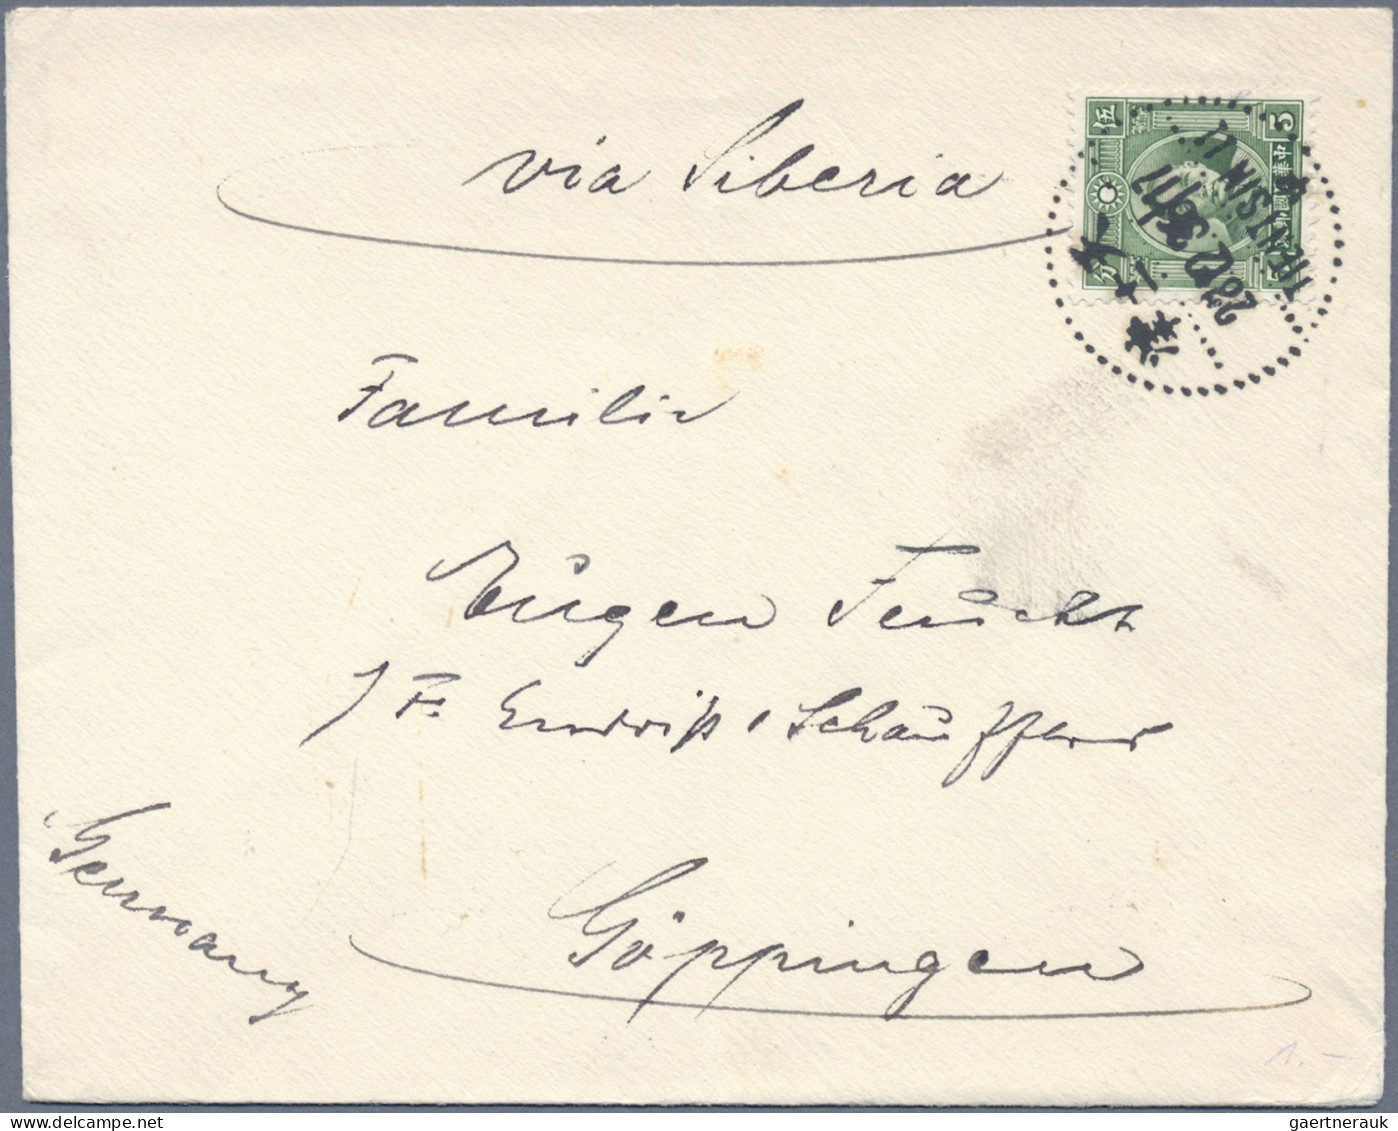 via Siberia
5
伍
中華民國郵政
分
TIENTSIN
28.12.36
津
Familie
Eugen Feucht
F. Endriß, Schauffler
Göppingen
Germany
1.-
gaertnerauk